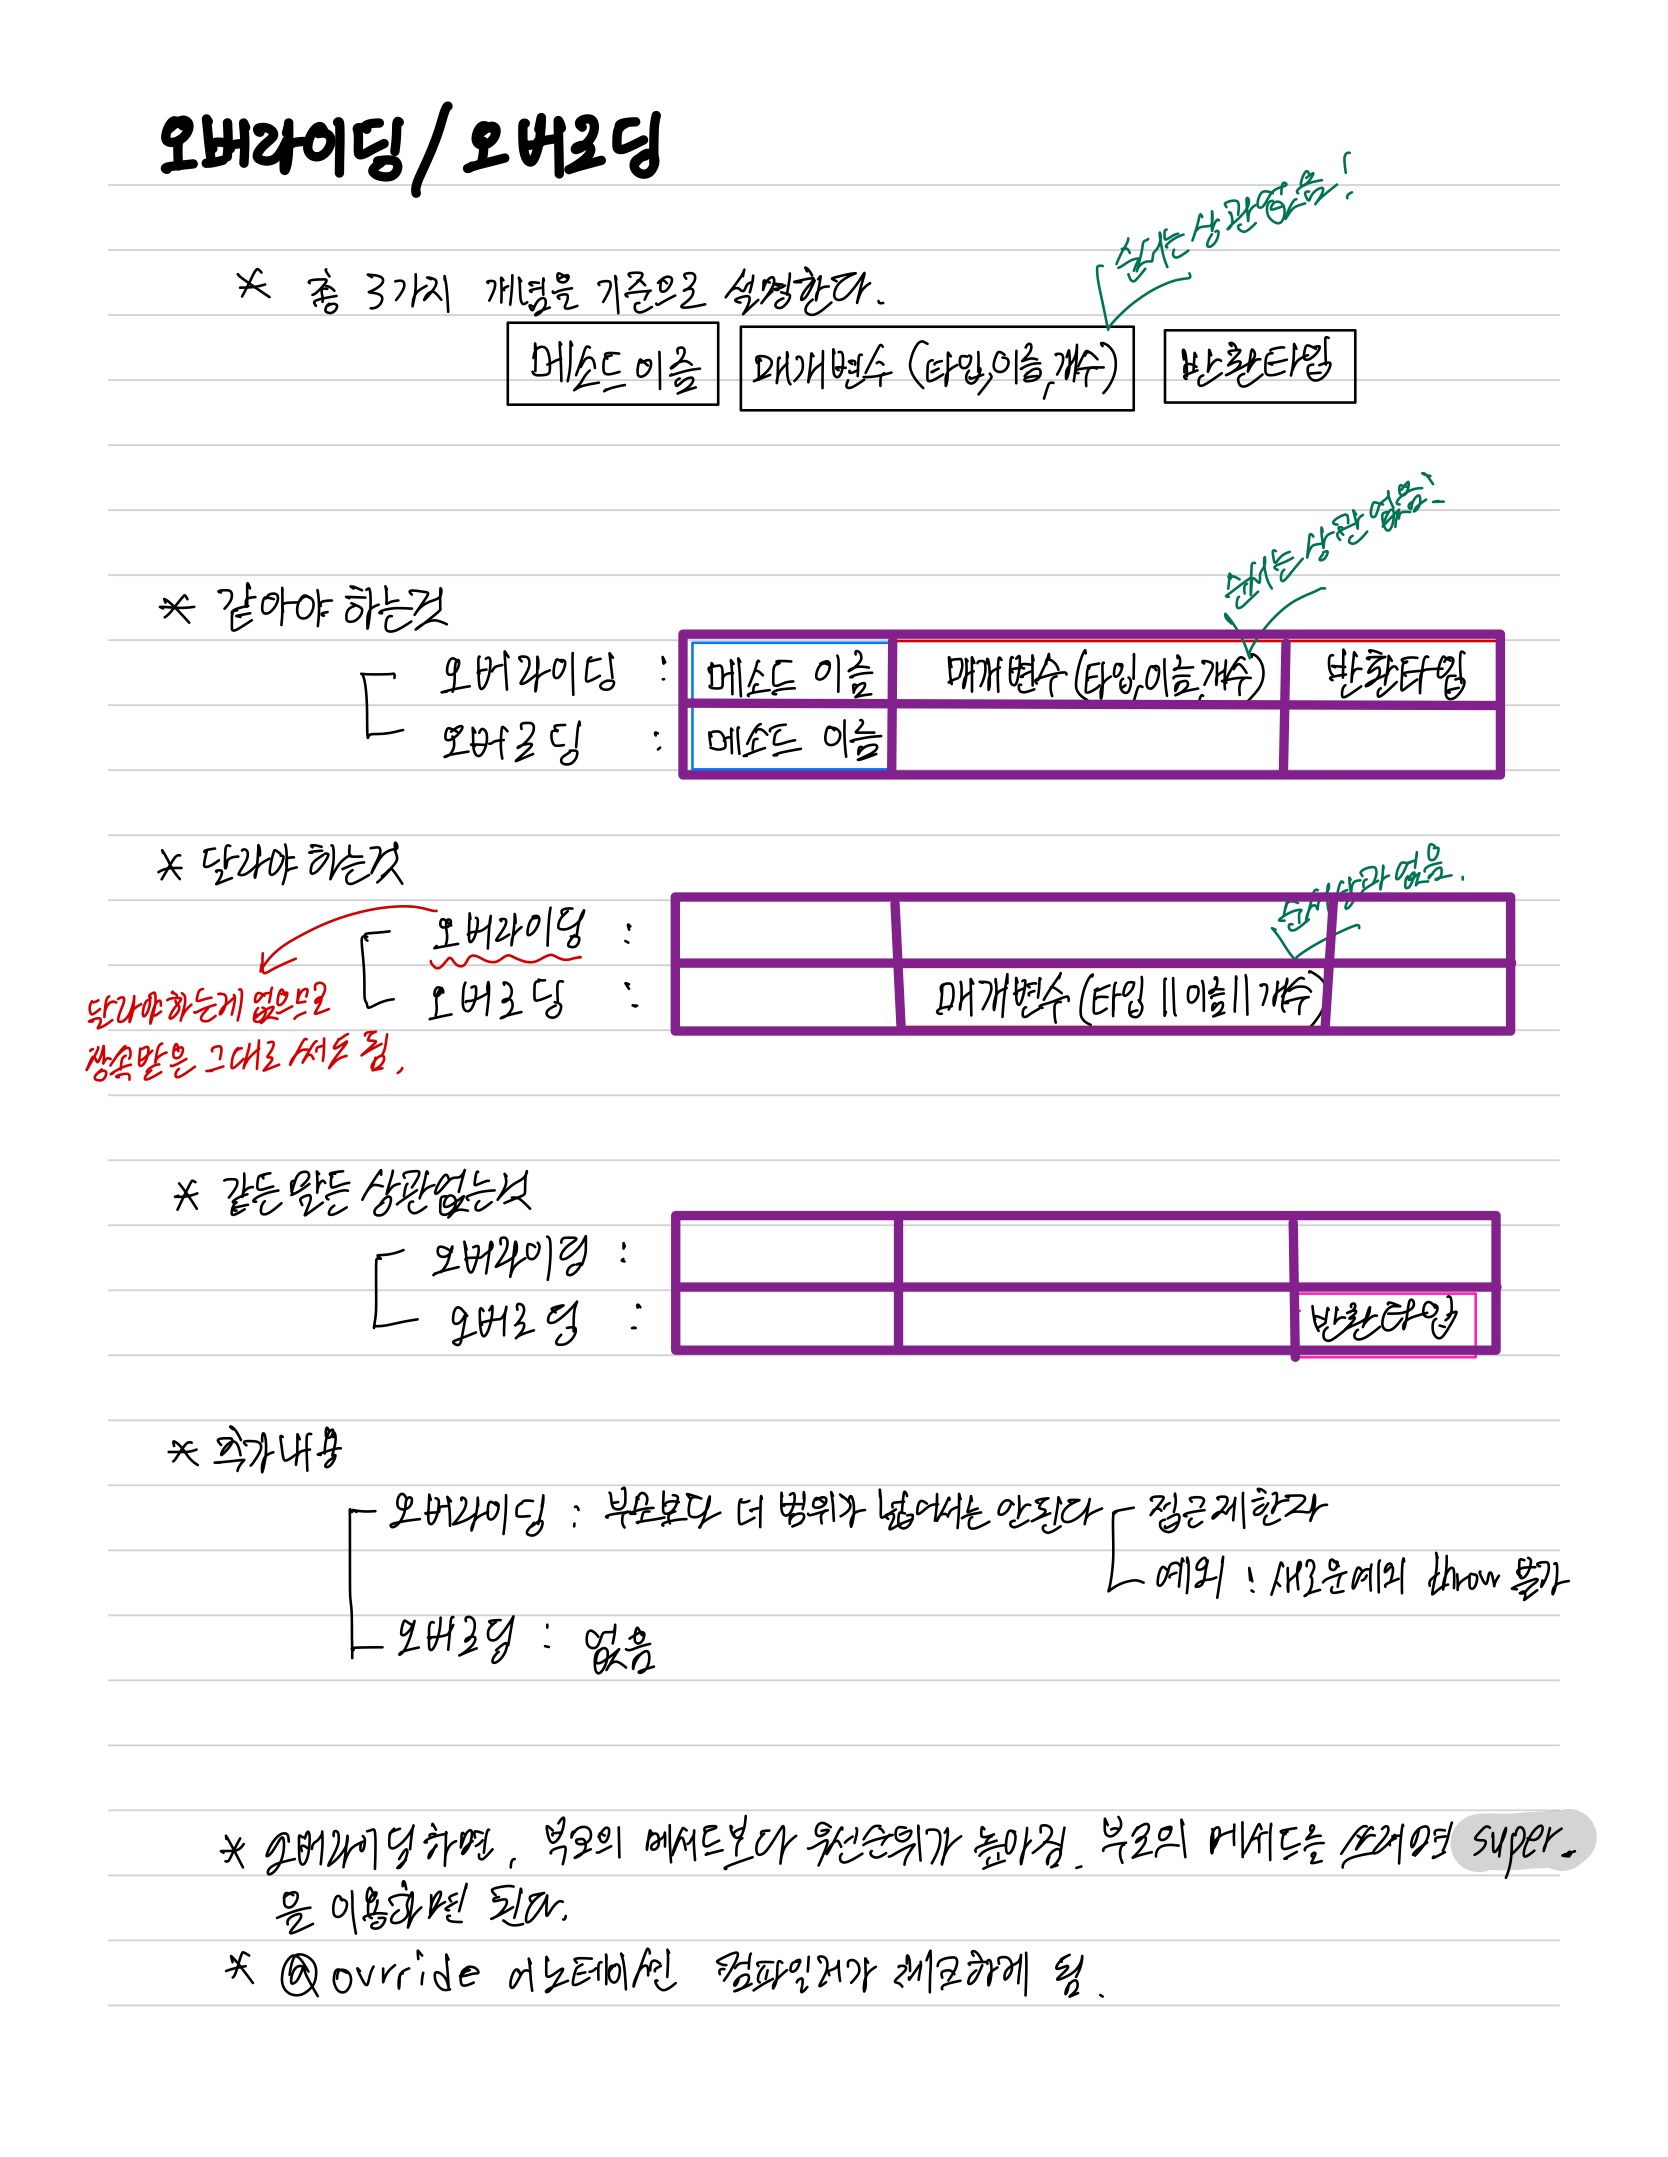 오버라이딩 / 오버로딩
순서는 상관없음!
* 총 3가지 개념을 기준으로 설명한다.
메소드 이름 매개변수 (타입,이름,개수) 반환타입
순서는 상관 없음!
* 같아야 하는것
오버라이딩 : 메소드 이름 매개변수(타입,이름,개수) 반환타입
오버로딩 : 메소드 이름
* 달라야 하는것
순서 상관 없음.
오버라이딩 :
오버로딩 : 매개변수(타입||이름||개수)
달라야하는게 없으므로
상속받은 그대로 써도 됨.
* 같든말든 상관없는것
오버라이딩 :
오버로딩 : 반환타입
* 추가내용
오버라이딩 : 부모보다 더 범위가 넓어서는 안된다 접근제한자
예외 : 새로운예외 throw 불가
오버로딩 : 없음
* 오버라이딩하면, 부모의 메서드보다 우선순위가 높아짐. 부모의 메서드를 쓰려면 super.
을 이용하면 된다.
* @ovrride 어노테이션 컴파일러가 체크하게 됨.